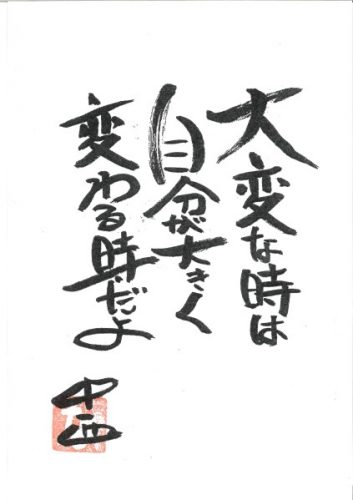 大変な時は
自分が大きく
変わる時だよ